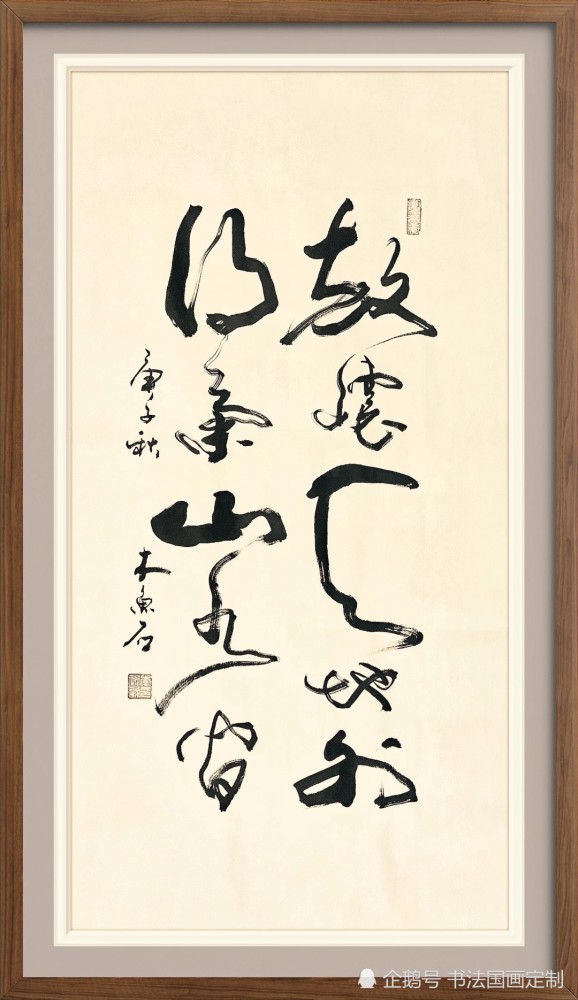 放懷天地外
得氣山水間
庚子秋 木魚石
企鹅号 书法国画定制